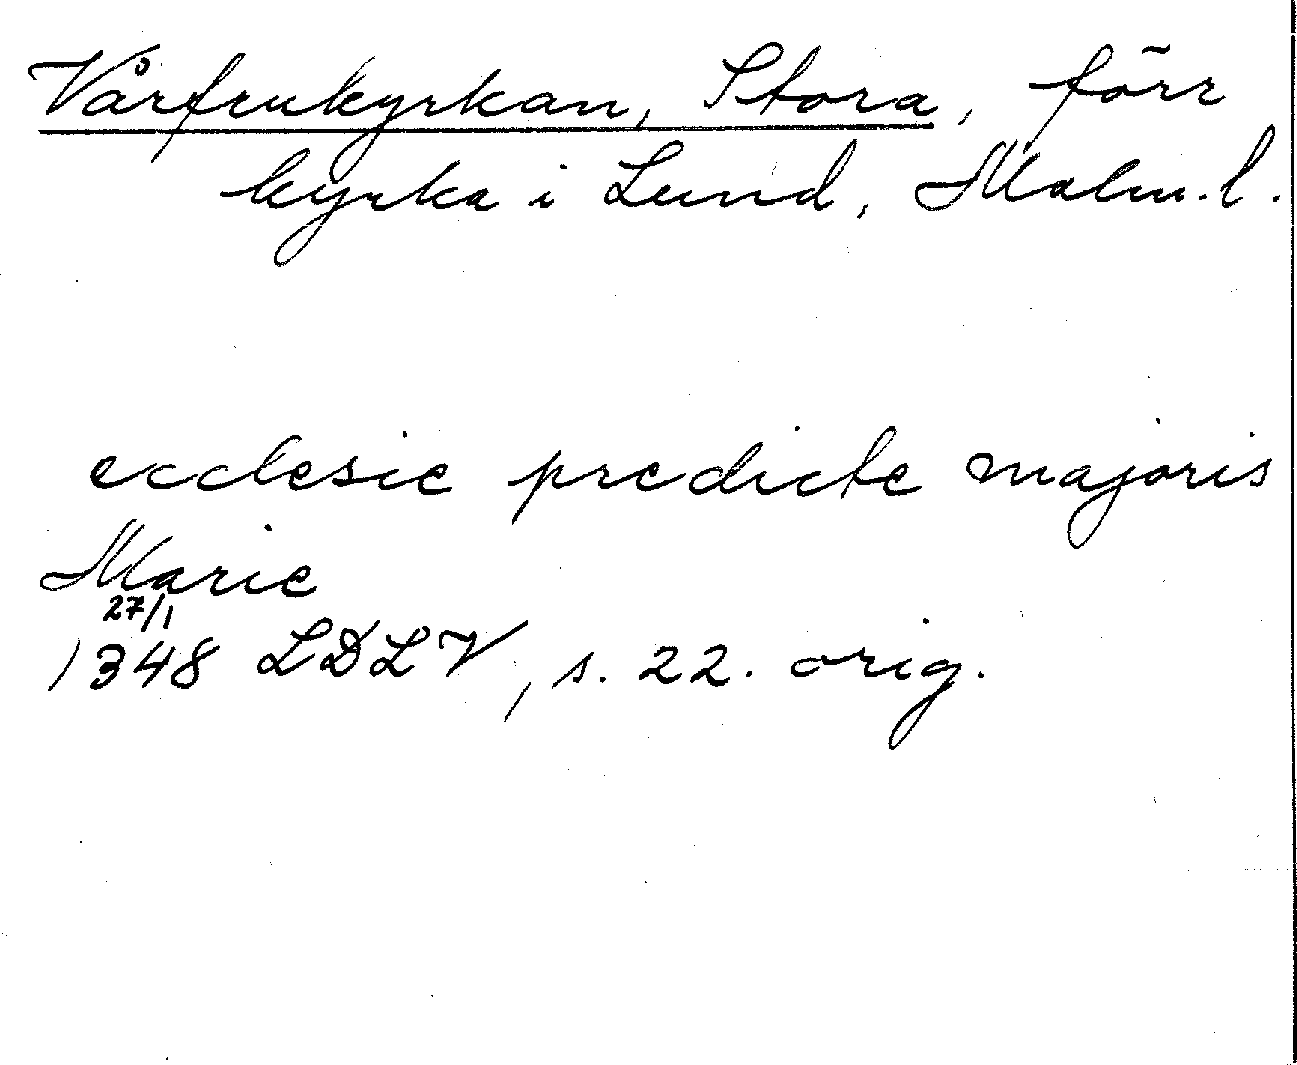 Vårfrukyrkan, Stora, förr
kyrka i Lund, Malm. l.
ecclesie predicte majoris
Marie
27/1
1348 LDLV, s. 22. orig.